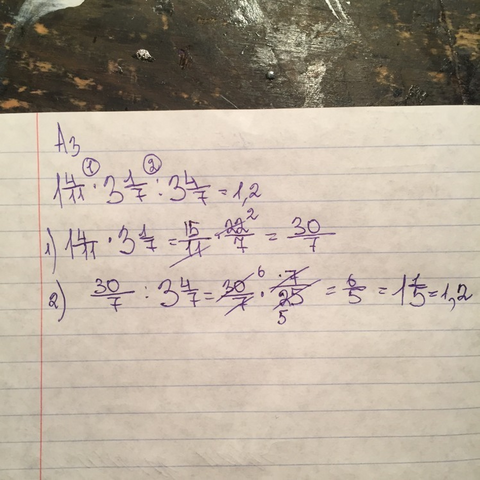 А3
① ②
1 4/11 · 3 1/7 : 3 4/7 = 1,2
1) 1 4/11 · 3 1/7 = 15/11 · 22/7 2 = 30/7
2) 30/7 : 3 4/7 = 30/7 6 · 7/25 5 = 6/5 = 1 1/5 = 1,2